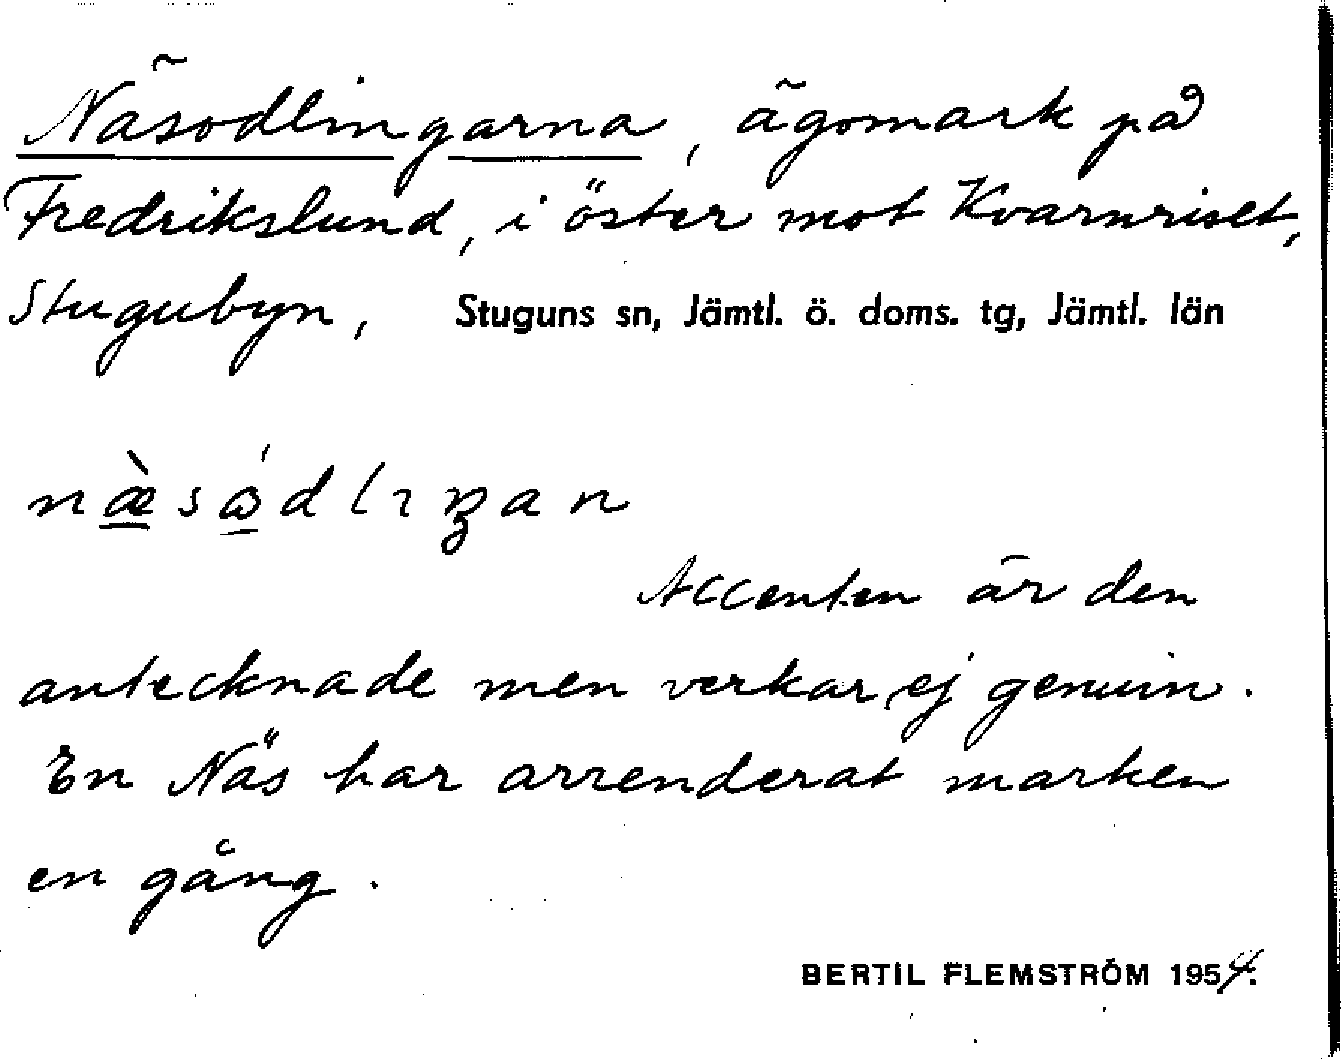 Näsodlingarna, ägomark på
Fredrikslund, i öster mot Kvarnriset,
Stugubyn, Stuguns sn, Jämtl. ö. doms. tg, Jämtl. län
næ̀sὠdlıŋan
Accenten är den
antecknade men verkar ej genuin.
En Näs har arrenderat marken
en gång.
BERTIL FLEMSTRÖM 1954.